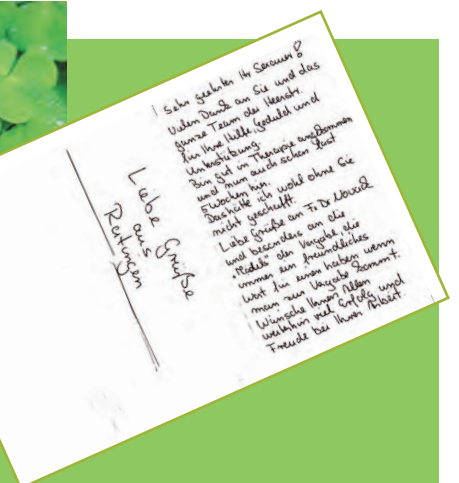 Sehr geehrter Hr Sercauer!
Vielen Dank an Sie und das
ganze Team der Heerstr.
für Ihre Hilfe, Geduld und
Unterstützung.
Bin gut in Therapie angekommen
und nun auch schon fast
Wochen hier.
Das hätte ich wohl ohne Sie
nicht geschafft.
Liebe Grüße an Fr. Dr. Novak
und besonders an die
"Mädels" der Vergabe, die
immer ein freundliches
Wort für einen haben wenn
man zur Vergabe kommt.
Wünsche Ihnen Allen
weiterhin viel Erfolg und
Freude bei Ihrer Arbeit.
Liebe Grüße
aus